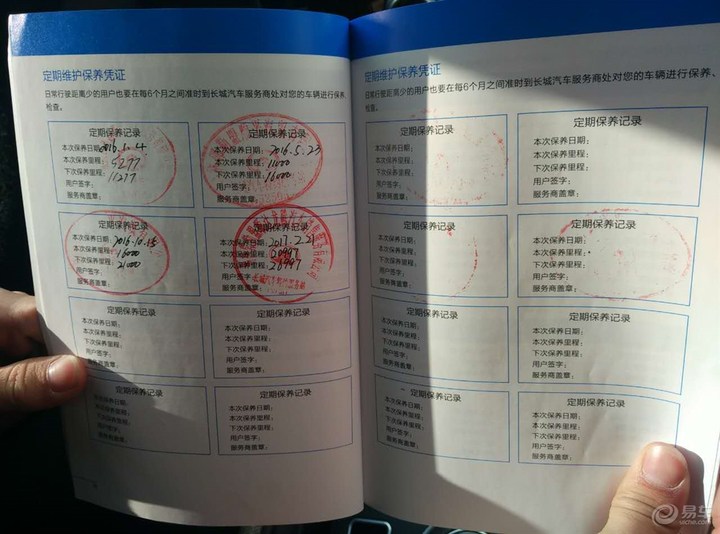 定期维护保养凭证
日常行驶距离少的用户也要在每6个月之间准时到长城汽车服务商处对您的车辆进行保养
检查。
定期保养记录
本次保养日期：2016.5.4
本次保养里程：5277
下次保养里程：11277
用户签字：
服务商盖章：
定期保养记录
本次保养日期：2016.5.23
本次保养里程：11000
下次保养里程：16000
用户签字：
服务商盖章：
定期保养记录
本次保养日期：2016.10.15
本次保养里程：16000
下次保养里程：21000
用户签字：
服务商盖章：
定期保养记录
本次保养日期：2017.2.21
本次保养里程：20997
下次保养里程：26997
用户签字：
服务商盖章：
定期保养记录
本次保养日期：
本次保养里程：
下次保养里程：
用户签字：
服务商盖章：
定期保养记录
本次保养日期：
本次保养里程：
下次保养里程：
用户签字：
服务商盖章：
定期保养记录
本次保养日期：
本次保养里程：
下次保养里程：
用户签字：
服务商盖章：
定期保养记录
本次保养日期：
本次保养里程：
下次保养里程：
用户签字：
服务商盖章：
定期维护保养凭证
日常行驶距离少的用户也要在每6个月之间准时到长城汽车服务商处对您的车辆进行保养、
检查。
定期保养记录
本次保养日期：
本次保养里程：
下次保养里程：
用户签字：
服务商盖章：
定期保养记录
本次保养日期：
本次保养里程：
下次保养里程：
用户签字：
服务商盖章：
定期保养记录
本次保养日期：
本次保养里程：
下次保养里程：
用户签字：
服务商盖章：
定期保养记录
本次保养日期：
本次保养里程：
下次保养里程：
用户签字：
服务商盖章：
定期保养记录
本次保养日期：
本次保养里程：
下次保养里程：
用户签字：
服务商盖章：
定期保养记录
本次保养日期：
本次保养里程：
下次保养里程：
用户签字：
服务商盖章：
定期保养记录
本次保养日期：
本次保养里程：
下次保养里程：
用户签字：
服务商盖章：
定期保养记录
本次保养日期：
本次保养里程：
下次保养里程：
用户签字：
服务商盖章：
易车